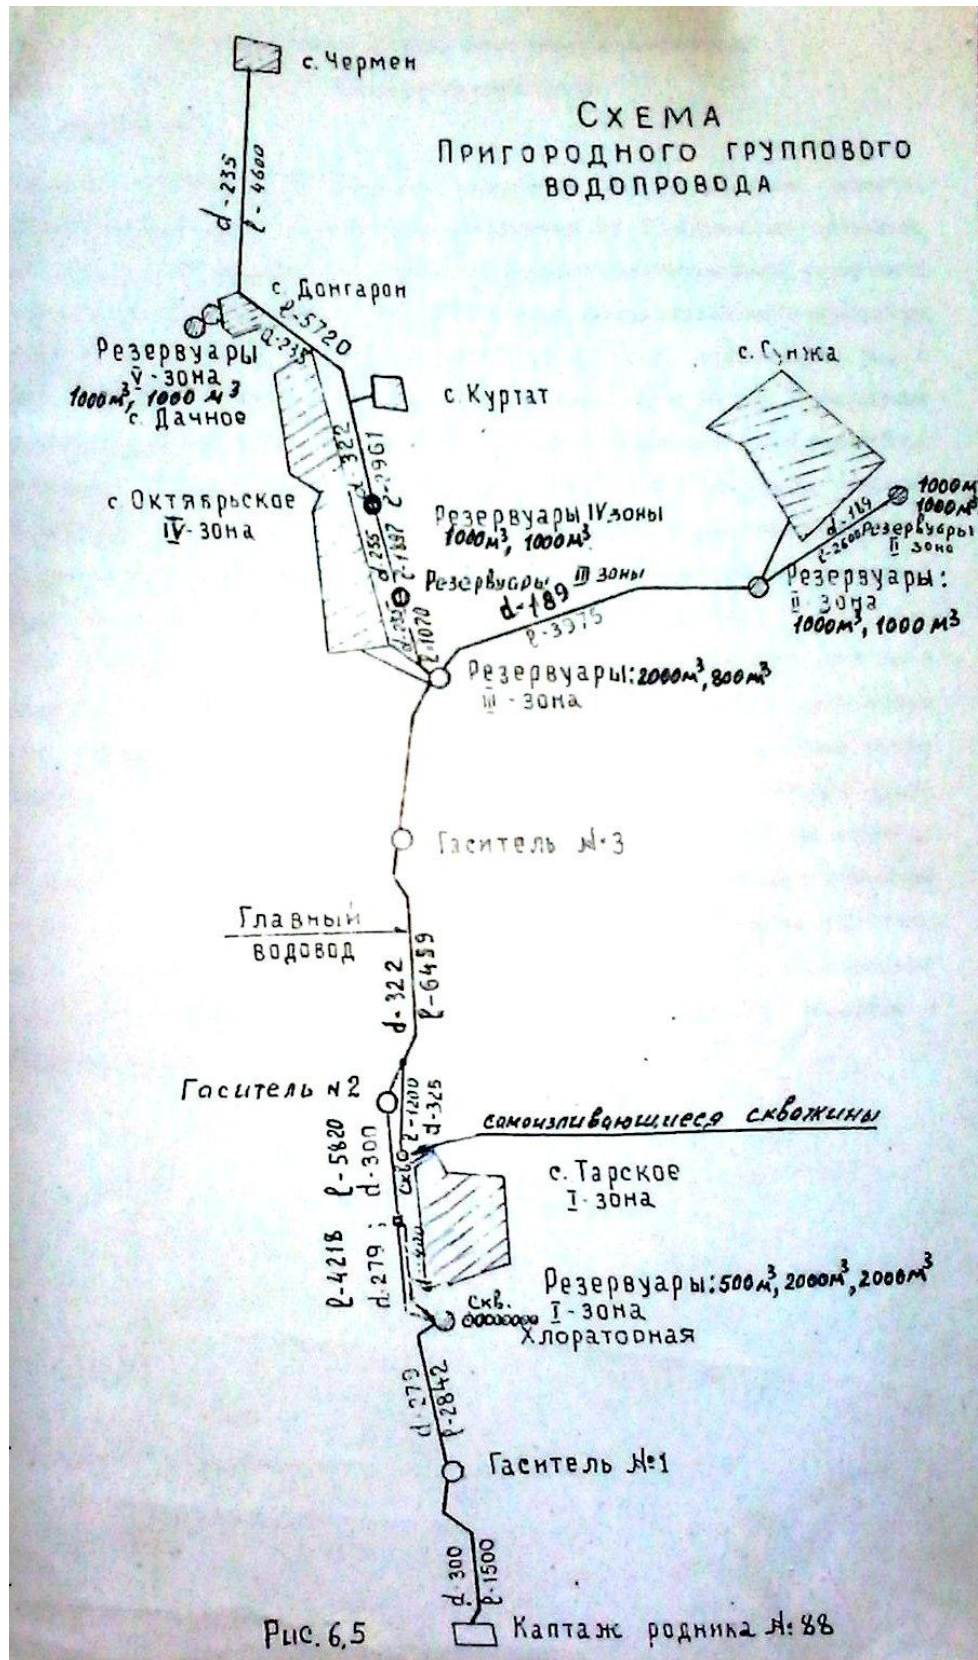 с. Чермен
СХЕМА
ПРИГОРОДНОГО ГРУППОВОГО
ВОДОПРОВОДА
d-235
ℓ-4600
с. Донгарон
ℓ-5720
d-235
Резервуары
V-зона
1000м³, 1000 м³
с. Дачное
с. Куртат
с. Сунжа
d-322
ℓ-2961
с. Октябрьское
IV-зона
Резервуары IV зоны
1000м³, 1000м³
1000м
1000м³
d-189
ℓ-2600
Резервуары
II зона
d-235
Резервуары III зоны
d-189
ℓ-3975
Резервуары:
II зона
1000м³, 1000 м³
ℓ-1070
Резервуары: 2000м³, 800м³
III-зона
Гаситель №3
Главный
водовод
d-322
ℓ-6459
Гаситель №2
ℓ-1200
d-325
самоизливающиеся скважины
ℓ-5820
d-300
Скв.
с. Тарское
I-зона
ℓ-4218
d-279;
Резервуары: 500м³, 2000м³, 2000м³
I-зона
Скв.
Хлораторная
d-279
ℓ-2842
Гаситель №1
d-300
ℓ-1500
Рис. 6,5
Каптаж родника №88